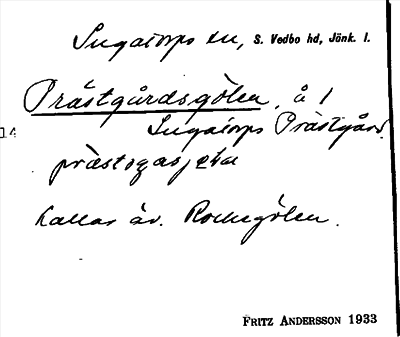 Ingatorps sn, S. Vedbo hd, Jönk. l.
Prästgårdsgölen, å 1
14
Ingatorps Prästgård.
kallas äv. Rockegölen.
FRITZ ANDERSSON 1933